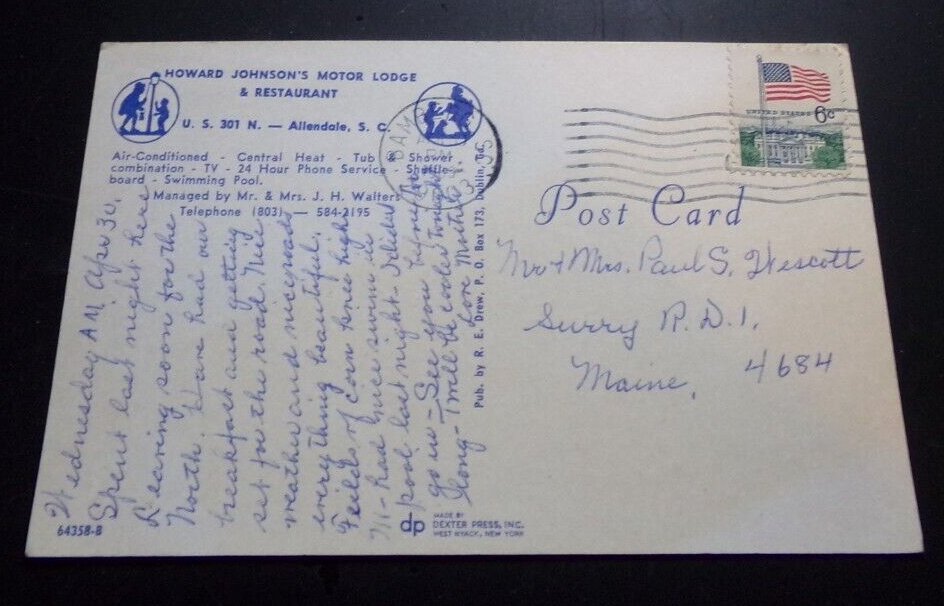 HOWARD JOHNSON'S MOTOR LODGE
& RESTAURANT
U. S. 301 N. — Allendale, S. C.
Air-Conditioned - Central Heat - Tub & Shower
combination - TV - 24 Hour Phone Service - Shuffle-
board - Swimming Pool.
Managed by Mr. & Mrs. J. H. Walters
Telephone (803) — 584-2195
Wednesday A M. Apr 30.
Spent last night here
Leaving soon for the
North. Have had our
breakfast and getting
set for the road. Nice
weather and nice roads
everything beautiful.
Feilds of corn knee high
M- had nice swim in
pool last night. I didnt
go in - See you before
long - I will be cooler tonight
Love Myrtle
64358-B
Pub. by R. E. Drew, P. O. Box 173, Dublin, Ga.
dp
MADE BY
DEXTER PRESS, INC.
WEST NYACK, NEW YORK
BAM
PM
UNITED STATES
6c
Post Card
Mr + Mrs. Paul S. Wescott
Surry R.D.1.
Maine, 4684